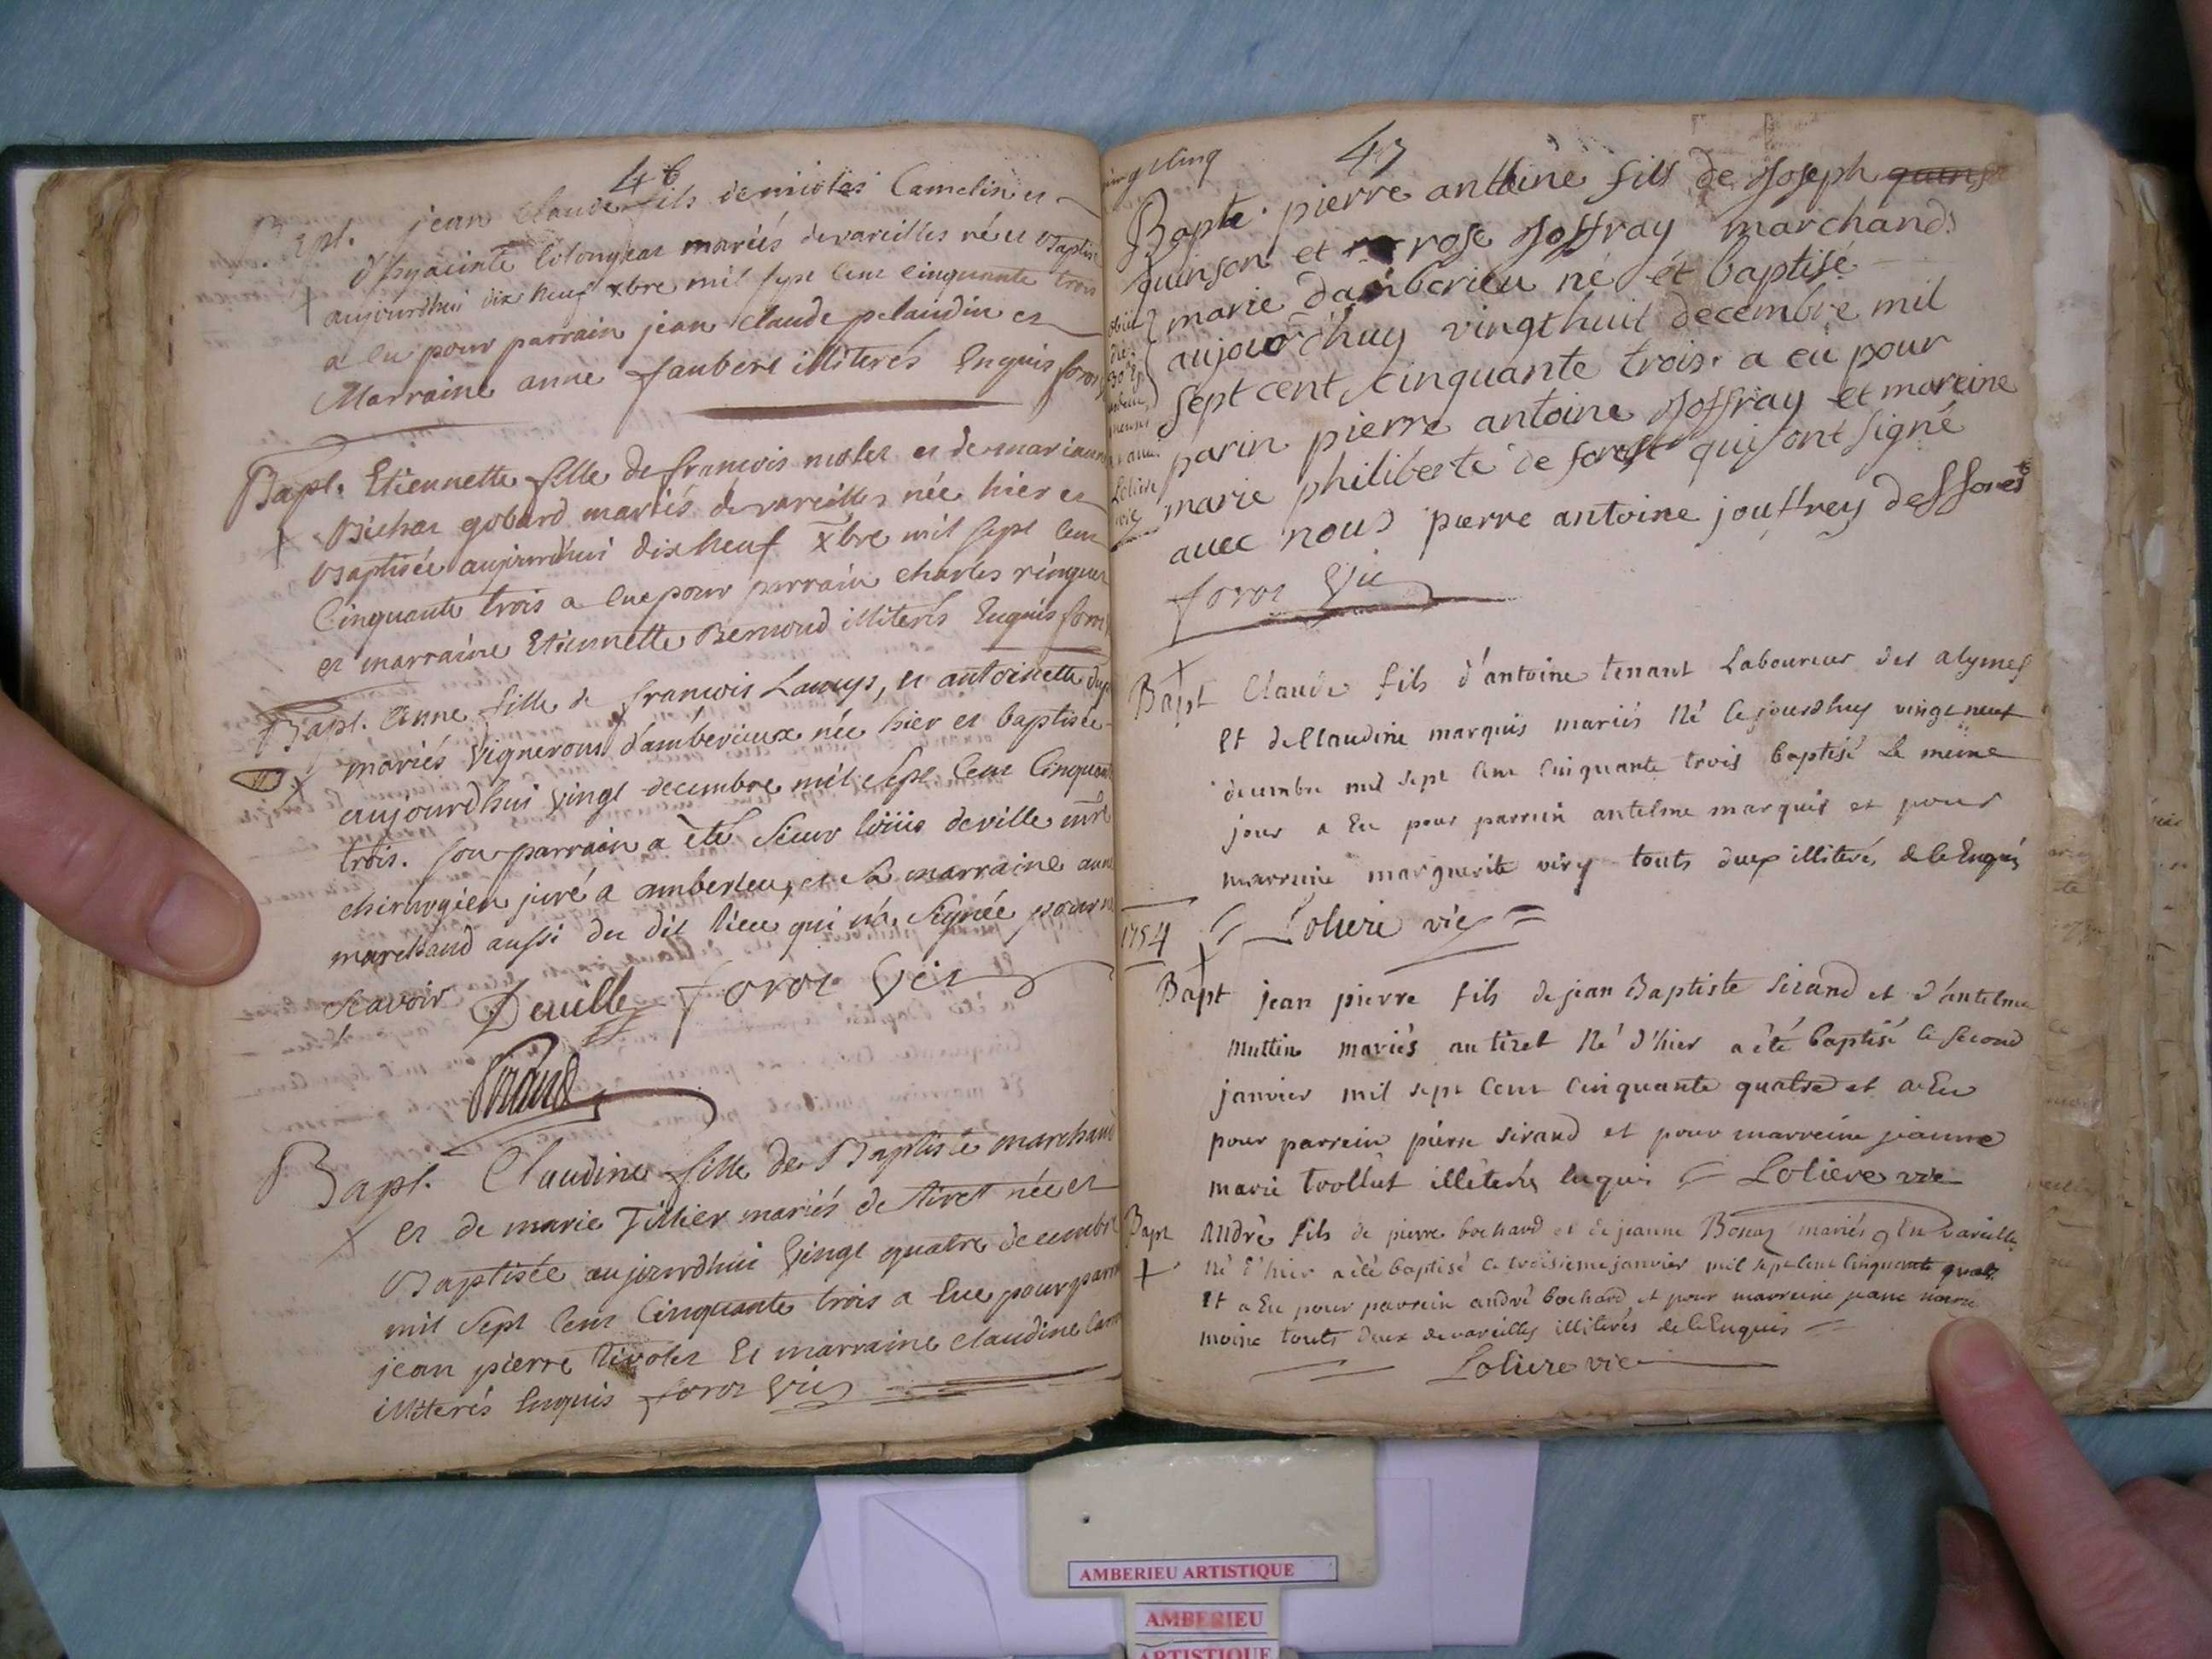 46
Bapt. jean Claude fils de nicolas Camelin et
d'hyacinte mariés de vareilles né et Baptisé
aujourdhui dix neuf xbre mil sept cent cinquante trois
a eu pour parrain jean claude pelaudin et
Marraine anne Jaubert illiterés Enquis
Bapt. Etiennette fille de francois molet et de
gobard mariés de vareilles née hier et
Baptisée aujourdhui dix neuf xbre mil sept cent
Cinquante trois a eue pour parrain charles
et marraine Etiennette Bernoud illiterés Enquis
Bapt. Anne fille de francois Lamys, et antoinette
mariés Vignerons d'amberieux née hier et baptisée
aujourdhui vingt decembre mil sept cent Cinquante
trois. son parrain a été Sieur loüis deville
chirurgien juré a amberieu, et sa marraine
marchand aussi du dit lieu qui n'a Signée pour
Scavoir Deville foror vic
Sirand
Bapt. Claudine fille de Baptiste marchand
et de marie Tillier mariés de tiret née et
Baptisée aujourdhui Vingt quatre decembre
mil Sept Cent Cinquante trois a Eue pour
jean pierre tivolet Et marraine claudine
illiterés Enquis foror vic
47
Bapte. pierre antoine fils de Joseph
quinson et rose Joffray marchands
marie damberieu né et baptisé
aujourd'huy vingthuit decembre mil
sept cent cinquante trois. a eu pour
parin pierre antoine Joffray et mareine
marie philiberte de forest qui ont signé
avec nous pierre antoine jouffrey desforets
foror vic
Bapt Claude fils d'antoine tenant Laboureur des alymes
Et de Claudine marquis mariés Né Cejourdhuy vingt neuf
decembre mil sept cent cinquante trois baptisé Le meme
jour a Eu pour parrein antelme marquis et pour
marreine marguerite viry touts deux illiterés de ce Enquis
Loliere vic
1754
Bapt jean pierre fils de jean Baptiste Sirand et d'antelme
Muttin mariés au tiret Né d'hier a été baptisé le second
janvier mil sept Cent Cinquante quatre et a Eu
pour parrein pierre Sirand et pour marreine jeanne
marie trollut illéterés enquis Loliere vic
Bapt André fils de pierre bochard et de jeanne Bonaz mariés en vareille
Né d'hier a été baptisé le troisieme janvier mil sept cent cinquante quatre
Et a Eu pour parrein andré bochard et pour marreine jeane marie
moine touts deux de vareilles illiterés de ce Enquis
Loliere vic
AMBERIEU ARTISTIQUE
AMBERIEU
ARTISTIQUE